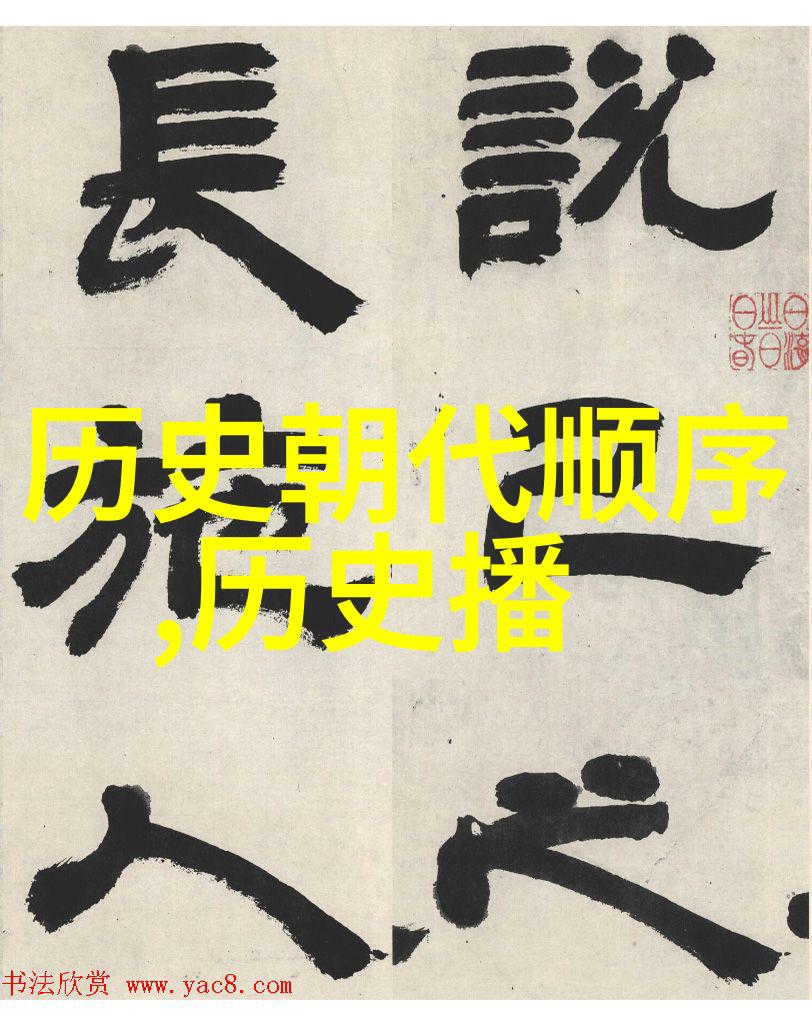 說己之
長施人
历史朝代顺序
,历史播
书法欣赏 www.yac8.com